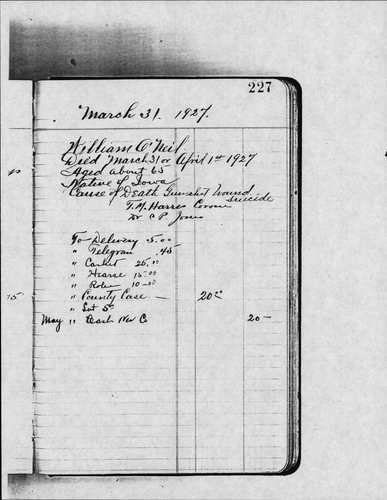 227
March 31. 1927.
William O'Neil.
Died March 31 or April 1st 1927
Aged about 65
Native of Iowa
Cause of Death Gunshot Wound
suicide
T. M. Harris Coroner
Dr C P. Jones
To Delivery 5.00
" Telegram .45
" Casket 25.00
" Hearse 15-00
" Robe 10-00
" County Case — 20.00
" Lot 5
May " Cash Nev Co 20-